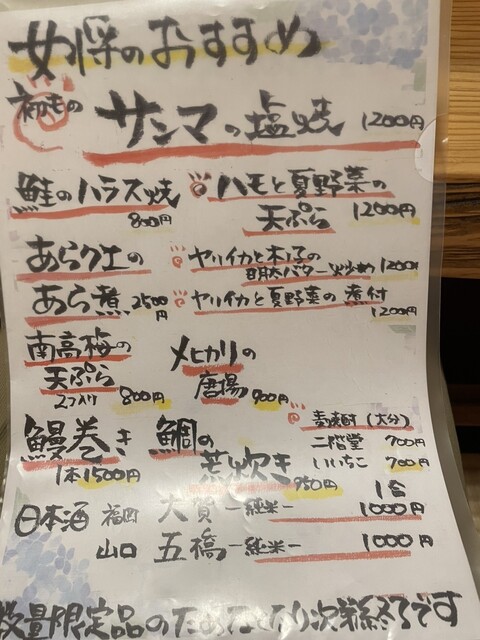 女将のおすすめ
初もの サンマの塩焼 1200円
鮭のハラス焼 800円
ハモと夏野菜の
天ぷら 1200円
あらクエの
あら煮 2500円
ヤリイカと木ノ子の
明太バター炒め 1200円
ヤリイカと夏野菜の煮付
1200円
南高梅の
天ぷら
2つ入り 800円
メヒカリの
唐揚 900円
鰻巻き
1本1500円
鯛の
荒炊き 950円
麦焼酎(大分)
二階堂 700円
いいちこ 700円
1合
日本酒 福岡 大賀-純米- 1000円
山口 五橋-純米- 1000円
数量限定品のためなくなり次第終了です